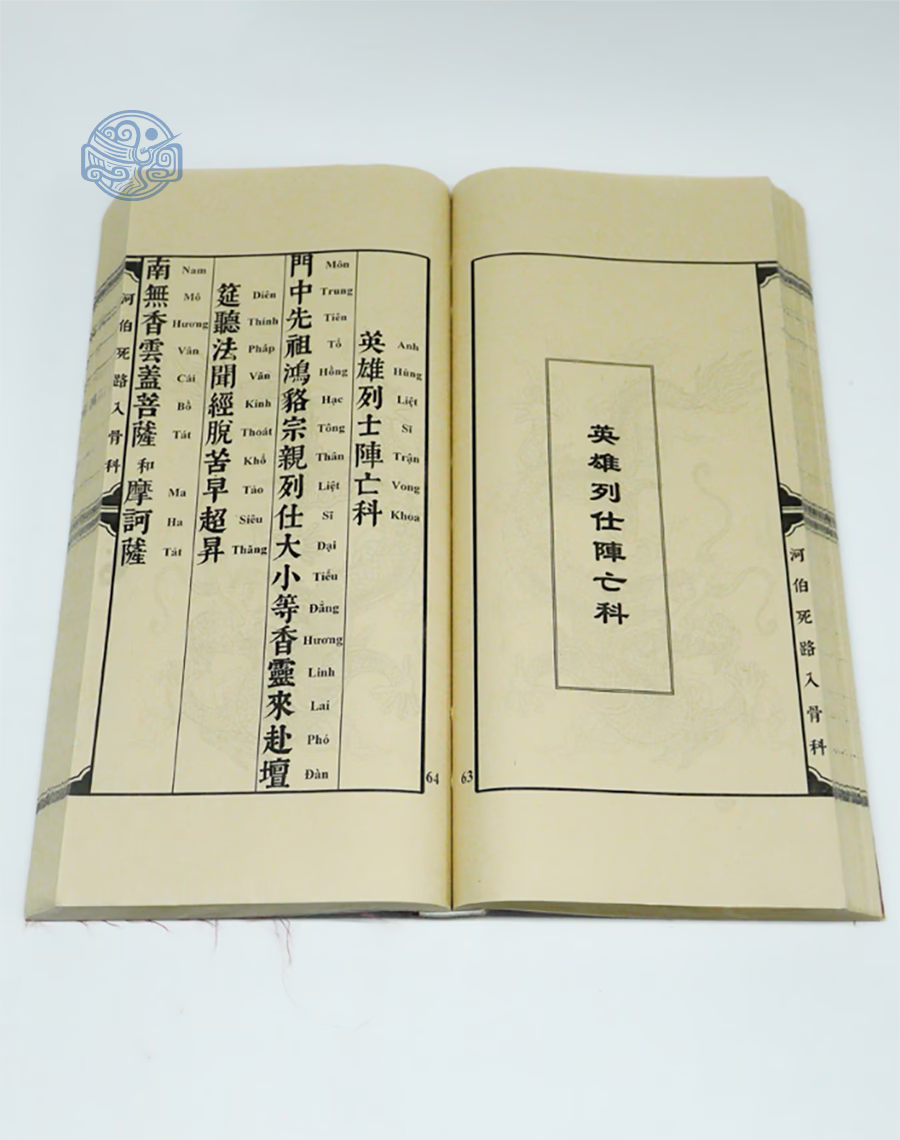 河伯死路入骨科
英雄列仕陣亡科
63
Anh Hùng Liệt Sĩ Trận Vong Khoa
英雄列士陣亡科
Môn Trung Tiên Tổ Hồng Hạc Tông Thân Liệt Sĩ Đại Tiểu Đẳng Hương Linh Lai Phó Đàn
門中先祖鴻貉宗親列仕大小等香靈來赴壇
Diên Thính Pháp Văn Kinh Thoát Khổ Tảo Siêu Thăng
筵聽法聞經脫苦早超昇
Nam Mô Hương Vân Cái Bồ Tát Ma Ha Tát
南無香雲蓋菩薩和摩訶薩
河伯死路入骨科
64